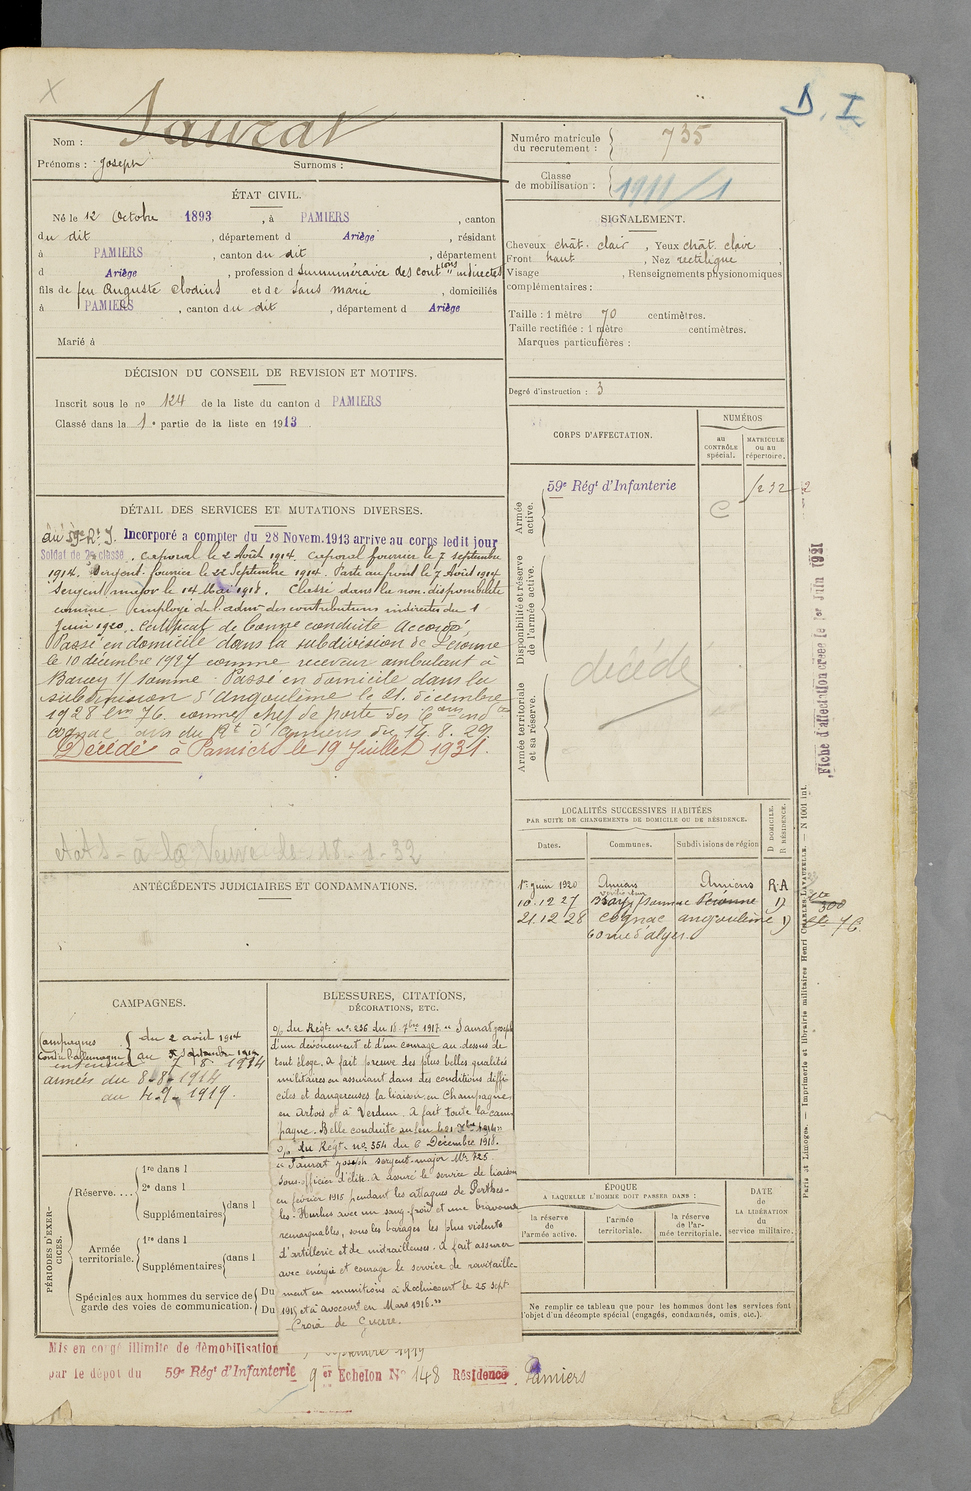 D. I
Nom : Saurat
Prénoms : Joseph Surnoms :
Numéro matricule du recrutement : 735
Classe de mobilisation : 1911/1
ÉTAT CIVIL.
Né le 12 Octobre 1893, à PAMIERS, canton
du dit, département d Ariège, résidant
à PAMIERS, canton du dit, département
d Ariège, profession d surnuméraire des contions indirectes
fils de feu Auguste Clodius et de Sans Marie, domiciliés
à PAMIERS, canton du dit, département d Ariège
Marié à
SIGNALEMENT.
Cheveux chât. clair, Yeux chât. clair,
Front haut, Nez rectiligne,
Visage , Renseignements physionomiques
complémentaires :
Taille : 1 mètre 70 centimètres.
Taille rectifiée : 1 mètre centimètres.
Marques particulières :
Degré d'instruction : 3
DÉCISION DU CONSEIL DE REVISION ET MOTIFS.
Inscrit sous le no 124 de la liste du canton d PAMIERS
Classé dans la 1e partie de la liste en 1913.
CORPS D'AFFECTATION.
NUMÉROS
au CONTRÔLE spécial.
MATRICULE ou au répertoire.
Armée active.
59e Régt d'Infanterie
Disponibilité et réserve de l'armée active.
Armée territoriale et sa réserve.
décédé
Fiche d'affectation créée le 1er Juin 1921
DÉTAIL DES SERVICES ET MUTATIONS DIVERSES.
au 59e R.I. Incorporé a compter du 28 Novem.1913 arrive au corps ledit jour
Soldat de 2e classe. Caporal le 2 Août 1914. Caporal fourrier le 7 septembre
1914. Sergent fourrier le 22 Septembre 1914. Parti au front le 7 Août 1914
Sergent major le 14 Mai 1918. Classé dans la non disponibilité
comme employé de l'admon des contributions indirectes du 1
Juin 1920. Certificat de bonne conduite Accordé
Passé en domicile dans la subdivision de Péronne
le 10 décembre 1927 comme receveur ambulant à
s/ Somme. Passé en domicile dans la
subdivision d'angoulême le 21 décembre
1928 76. comme chef de poste des Cons indes
Cognac avis du du 14.8.29.
Décédé à Pamiers le 19 Juillet 1931.
à la Veuve le
ANTÉCÉDENTS JUDICIAIRES ET CONDAMNATIONS.
LOCALITÉS SUCCESSIVES HABITÉES
PAR SUITE DE CHANGEMENTS DE DOMICILE OU DE RÉSIDENCE.
Dates. Communes. Subdivisions de région D. DOMICILE. R. RÉSIDENCE.
1er juin 1920 Amiens Amiens R.A
10.12 27 Bray s/ Somme Péronne D
21.12 28 Cognac angoulême D
60 rue d'alger.
300
76
CAMPAGNES.
Campagnes contre l'allemagne { du 2 août 1914
au
intérieur 7 8 1914
armées du 8-8-1914
au 4.9.1919.
BLESSURES, CITATIONS,
DÉCORATIONS, ETC.
O/ du Régt no 236 du 18 7bre 1917. "Saurat Joseph
d'un dévouement et d'un courage au-dessus de
tout éloge. A fait preuve des plus belles qualités
militaires en assurant dans des conditions diffi-
ciles et dangereuses la liaison en Champagne,
en Artois et à Verdun. A fait toute la cam-
pagne. Belle conduite au feu
O/ du Régt. no 354 du 6 Décembre 1918.
"Saurat Joseph sergent-major Mle 725.
Sous-officier d'élite. A assuré le service de liaison
en février 1915 pendant les attaques de Perthes-
les-Hurlus avec un sang-froid et une bravoure
remarquables, sous les barages les plus violents
d'artillerie et de mitrailleuses. A fait assurer
avec énergie et courage le service de ravitaille-
ment en munitions à Roclincourt le 25 sept.
1915 et à avocourt en Mars 1916."
Croix de Guerre.
PÉRIODES D'EXERCICES.
Réserve....
1re dans l
2e dans l
Supplémentaires dans l
Armée territoriale.
1re dans l
Supplémentaires dans l
Spéciales aux hommes du service de garde des voies de communication. Du
Du
ÉPOQUE
A LAQUELLE L'HOMME DOIT PASSER DANS :
la réserve de l'armée active.
l'armée territoriale.
la réserve de l'armée territoriale.
DATE DE LA LIBÉRATION du service militaire.
Ne remplir ce tableau que pour les hommes dont les services font
l'objet d'un décompte spécial (engagés, condamnés, omis, etc.).
Paris et Limoges. — Imprimerie et librairie militaires Henri CHARLES-LAVAUZELLE. — N 1001 int.
Mis en congé illimité de démobilisation septembre 1919
par le dépot du 59e Régt d'Infanterie 9er Echelon No 148 Résidence Pamiers